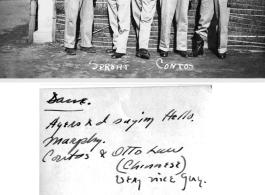 SPROAT CONTOS
Dave.
Ayers & I saying Hello.
Murphy.
Contos & Otto Lau
(Chinnese)
Very nice guy.